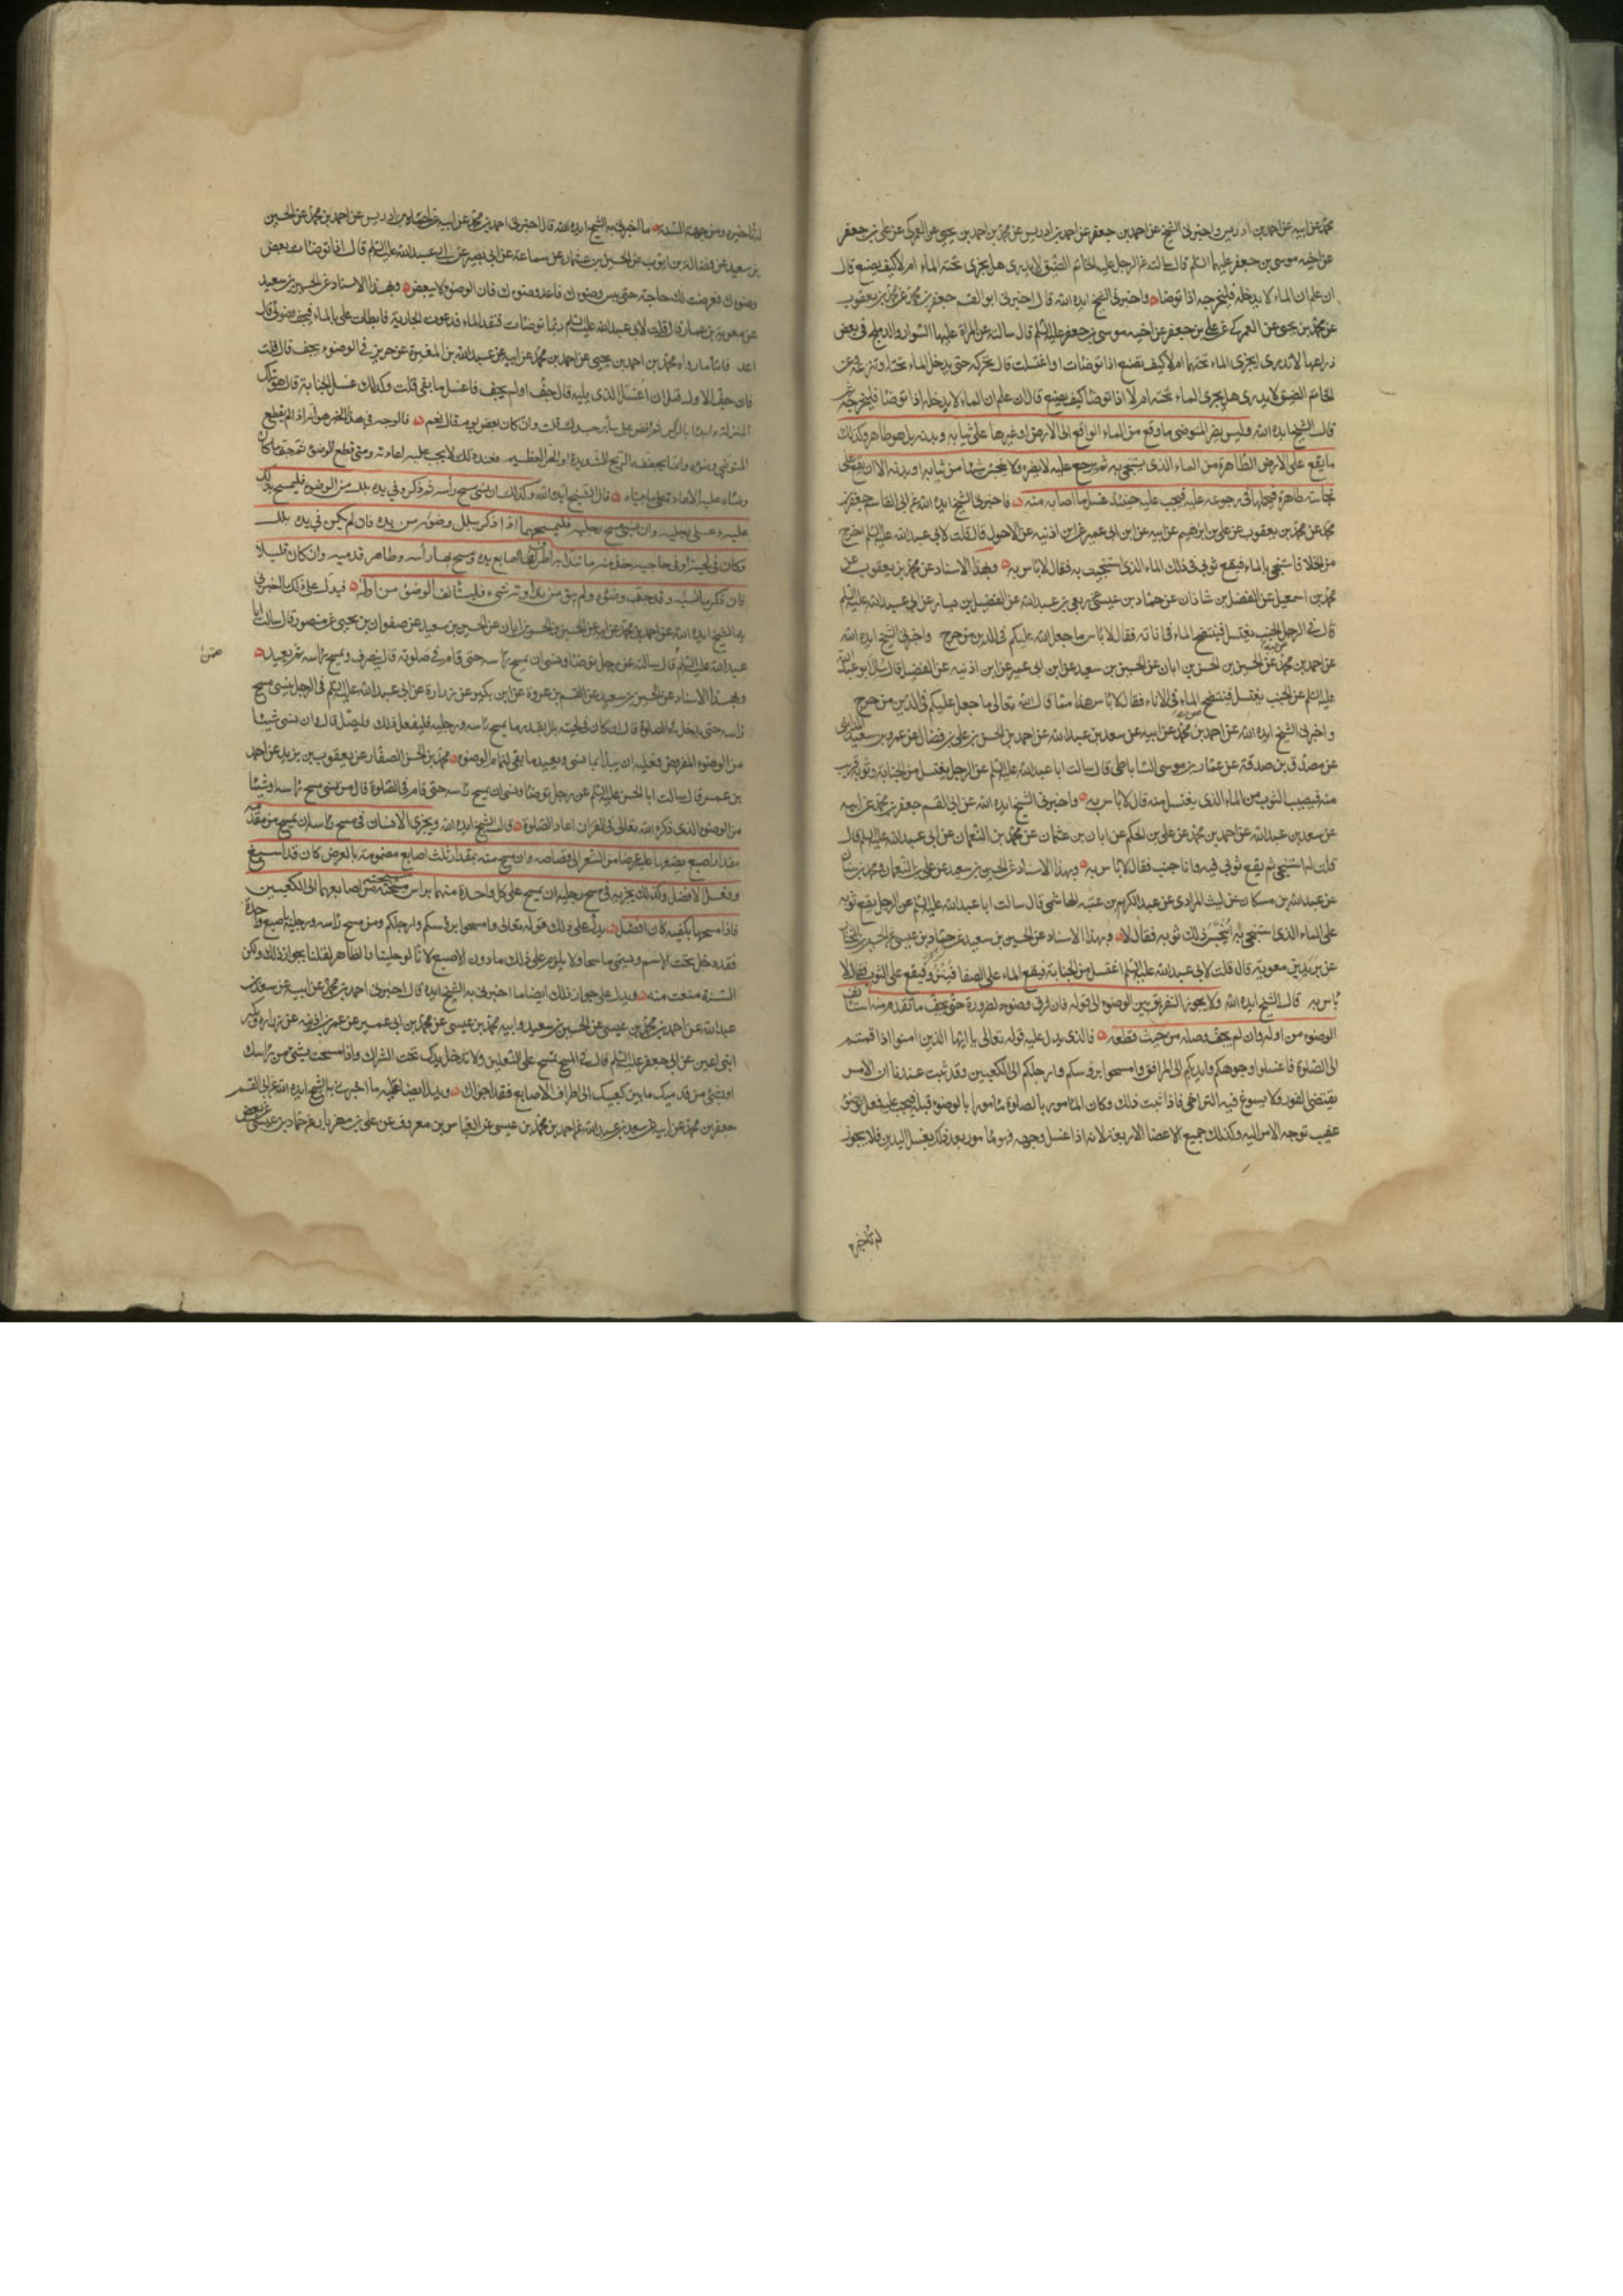 محمد عن ابيه عن احمد بن ادريس واخبرنى الشيخ عن احمد بن جعفر عن احمد بن ادريس عن محمد بن احمد بن يحيى عن العمركى عن على بن جعفر
عن اخيه موسى بن جعفر عليهما السلم قال سالته عن الرجل عليه الخاتم الضيق لا يدرى هل يجرى تحته الماء ام لا كيف يصنع قال
ان علم ان الماء لا يدخله فليخرجه اذا توضا واخبرنى الشيخ ايده الله قال اخبرنى ابو القسم جعفر بن محمد عن محمد بن يعقوب
عن محمد بن يحيى عن العمركى عن على بن جعفر عن اخيه موسى بن جعفر عليه السلم قال سالته عن المراة عليها السوار والدملج فى بعض
ذراعها لا تدرى ايجرى الماء تحتهما ام لا كيف تصنع اذا توضات او اغتسلت قال تحركه حتى يدخل الماء تحته او تنزعه وعن
الخاتم الضيق لا يدرى هل يجرى الماء تحته ام لا اذا توضا كيف يصنع قال ان علم ان الماء لا يدخله اذا توضا فليخرجه
قال الشيخ ايده الله وليس يضر المتوضى ما وقع من الماء الواقع الى الارض او غيرها على ثيابه وبدنه بل هو طاهر وكذلك
ما يقع على الارض الطاهرة من الماء الذى يستنجى به ثم يرجع عليه لا يضره ولا ينجس شيئا من ثيابه او بدنه الا ان يقع على
نجاسة ظاهرة فيحملها فى رجوعه عليه فيجب عليه حينئذ غسل ما اصابه منه فاخبرنى الشيخ ايده الله عن ابى القاسم جعفر بن
محمد عن محمد بن يعقوب عن على بن ابرهيم عن ابيه عن ابن ابى عمير عن ابن اذنيه عن الاحول قال قلت لابى عبد الله عليه السلم اخرج
من الخلا فاستنجى بالماء فيقع ثوبى فى ذلك الماء الذى استنجيت به فقال لا باس به وبهذا الاسناد عن محمد بن يعقوب عن
محمد بن اسمعيل عن الفضل بن شاذان عن حماد بن عيسى عن ربعى بن عبد الله عن الفضيل بن يسار عن ابى عبد الله عليه السلم
قال فى الرجل الجنب يغتسل فينتضح الماء فى اناته فقال لا باس ما جعل الله عليكم فى الدين من حرج واخبرنى الشيخ ايده الله
عن احمد بن محمد عن الحسين بن الحسن بن ابان عن الحسين بن سعيد عن ابن ابى عمير عن ابن اذنيه عن الفضيل قال سئل ابو عبد الله
عليه السلم عن الجنب يغتسل فينتضح الماء فى الاناء فقال لا باس هذا مما قال الله تعالى ما جعل عليكم فى الدين من حرج
واخبرنى الشيخ ايده الله عن احمد بن محمد عن ابيه عن سعد بن عبد الله عن احمد بن الحسن بن على بن فضال عن عمرو بن سعيد المداينى
عن مصدق بن صدقة عن عمار بن موسى الساباطى قال سالت ابا عبد الله عليه السلم عن الرجل يغتسل من الجنابة وثوبه قريب
منه فيصيب الثوب من الماء الذى يغتسل منه قال لا باس به واخبرنى الشيخ ايده الله عن ابى القسم جعفر بن محمد عن ابيه
عن سعد بن عبد الله عن احمد بن محمد عن على بن الحكم عن ابان بن عثمان عن محمد بن النعمان عن ابى عبد الله عليه السلم قال
قلت له استنجى ثم يقع ثوبى فيه وانا جنب فقال لا باس به وبهذا الاسناد عن الحسين بن سعيد عن على بن النعمان ومحمد بن سنان
عن عبد الله بن مسكان عن ليث المرادى عن عبد الكريم بن عتبه الهاشمى قال سالت ابا عبد الله عليه السلم عن الرجل يقع ثوبه
على الماء الذى استنجى به اينجس ذلك ثوبه فقال لا وبهذا الاسناد عن الحسين بن سعيد عن حماد بن عيسى عن الحسين بن المختار
عن بريد بن معوية قال قلت لابى عبد الله عليه السلم اغتسل من الجنابة فيقع الماء على الصفا فينزو فيقع على الثوب فقال لا
باس به قال الشيخ ايده الله ولا يجوز التفريق بين الوضوء الى قوله فان فرق وضوءه لضرورة حتى يجف ما تقدم منه استانف
الوضوء من اوله وان لم يجف وصله من حيث قطعه فالذى يدل عليه قوله تعالى يا ايها الذين امنوا اذا قمتم
الى الصلوة فاغسلوا وجوهكم وايديكم الى المرافق وامسحوا برؤسكم وارجلكم الى الكعبين وقد ثبت عندنا ان الامر
يقتضى الفور فلا يسوغ فيه التراخى فاذا ثبت ذلك وكان المامور بالصلوة مامورا بالوضوء قبله فيجب عليه فعل الوضوء
عقيب توجه الامر اليه وكذلك جميع الاعضا الاربعة لانه اذا غسل وجهه فهو مامور بعد ذلك بغسل اليدين فلا يجوز
له تاخيره
له تاخيره ومن جهة السنة ما اخبرنى به الشيخ ايده الله قال اخبرنى احمد بن محمد عن ابيه عن احمد بن ادريس عن احمد بن محمد عن الحسين
بن سعيد عن فضالة بن ايوب عن الحسين بن عثمان عن سماعة عن ابى بصير عن ابى عبد الله عليه السلم قال اذا توضات بعض
وضوءك فعرضت لك حاجة حتى يبس وضوءك فاعد وضوءك فان الوضوء لا يبعض وبهذا الاسناد عن الحسين بن سعيد
عن معوية بن عمار قال قلت لابى عبد الله عليه السلم ربما توضات فنفد الماء فدعوت الجارية فابطات على بالماء فيجف وضوئى قال
اعد فاما ما رواه محمد بن احمد بن يحيى عن احمد بن محمد عن ابيه عن عبد الله بن المغيرة عن حريز فى الوضوء يجف قال قلت
فان جف الاول قبل ان اغسل الذى يليه قال جف او لم يجف فاغسل ما بقى قلت وكذلك غسل الجنابة قال هو بتلك
المنزلة وابدا بالراس ثم افض على ساير جسدك قلت وان كان بعض يوم قال نعم فالوجه فى هذا الخبر هو انه اذا لم يقطع
المتوضى وضوءه وانما يجففه الريح الشديدة او الحر العظيم فعند ذلك لا يجب عليه اعادته ومتى قطع الوضوء ثم جف ما كان
وضاه عليه الاعادة على ما بيناه قال الشيخ ايده الله وكذلك ان نسى مسح راسه ثم ذكر وفى يده بلل من الوضوء فليمسح بذلك
عليه وعلى رجليه وان نسى مسح رجليه فليمسحهما اذا ذكر ببلل وضوئه من يده فان لم يكن فى يده بلل
وكان فى لحيته او فى حاجبيه اخذ منه ما تندا به اطراف اصابع يده ومسح بها راسه وظاهر قدميه وان كان قليلا
فان ذكر ما نسيه وقد جف وضوءه ولم يبق من نداوته شىء فليستانف الوضوء من اوله فيدل على ذلك ما اخبرنى
به الشيخ ايده الله عن احمد بن محمد عن ابيه عن الحسين بن الحسن بن ابان عن الحسين بن سعيد عن صفوان بن يحيى عن منصور قال سالت ابا
عبد الله عليه السلم قال سالته عن رجل توضا ونسى ان يمسح راسه حتى قام فى صلوته قال ينصرف ويمسح راسه ثم يعيد
وبهذا الاسناد عن الحسين بن سعيد عن القسم بن عروة عن ابن بكير عن زرارة عن ابى عبد الله عليه السلم فى الرجل ينسى مسح
راسه حتى يدخل فى الصلوة قال ان كان فى لحيته بلل بقدر ما يمسح راسه ورجليه فليفعل ذلك وليصل قال وان نسى شيئا
من الوضوء المفروض فعليه ان يبدا بما نسى ويعيد ما بقى لتمام الوضوء محمد بن الحسن الصفار عن يعقوب بن يزيد عن احمد
بن عمر قال سالت ابا الحسن عليه السلم عن رجل توضا ونسى ان يمسح راسه حتى قام فى الصلوة قال من نسى مسح راسه او شيئا
من الوضوء الذى ذكره الله تعالى فى القران اعاد الصلوة قال الشيخ ايده الله ويجزى الانسان فى مسح راسه ان يمسح من مقدمه
مقدار اصبع يضعها عليه عرضا من الشعر الى قصاصه وان مسح منه بمقدار ثلث اصابع مضمومة بالعرض كان قد اسبغ
وفعل الافضل وكذلك يجزيه فى مسح رجليه ان يمسح على كل واحدة منهما براس مسبحته من اصابعهما الى الكعبين
فاذا مسحهما بكفيه كان افضل يدل على ذلك قوله تعالى وامسحوا برؤسكم وارجلكم ومن مسح راسه ورجليه باصبع واحدة
فقد دخل تحت الاسم ويسمى ماسحا ولا يلزم على ذلك ما دون الاصبع لانا لو خلينا والظاهر لقلنا بجواز ذلك ولكن
السنة منعت منه ويدل على جواز ذلك ايضا ما اخبرنى به الشيخ ايده الله قال اخبرنى احمد بن محمد عن ابيه عن سعد بن
عبد الله عن احمد بن محمد بن عيسى عن الحسين بن سعيد وابيه محمد بن عيسى عن محمد بن ابى عمير عن عمر بن اذينه عن زرارة وبكير
ابنى اعين عن ابى جعفر عليه السلم قال فى المسح تمسح على النعلين ولا تدخل يدك تحت الشراك واذا مسحت بشىء من راسك
او بشىء من قدميك ما بين كعبيك الى اطراف الاصابع فقد اجزاك ويدل ايضا عليه ما اخبرنى به الشيخ ايده الله عن ابى القسم
جعفر بن محمد عن ابيه عن سعد بن عبد الله عن احمد بن محمد بن عيسى عن العباس بن معروف عن على بن مهزيار عن حماد بن عيسى عن بعض